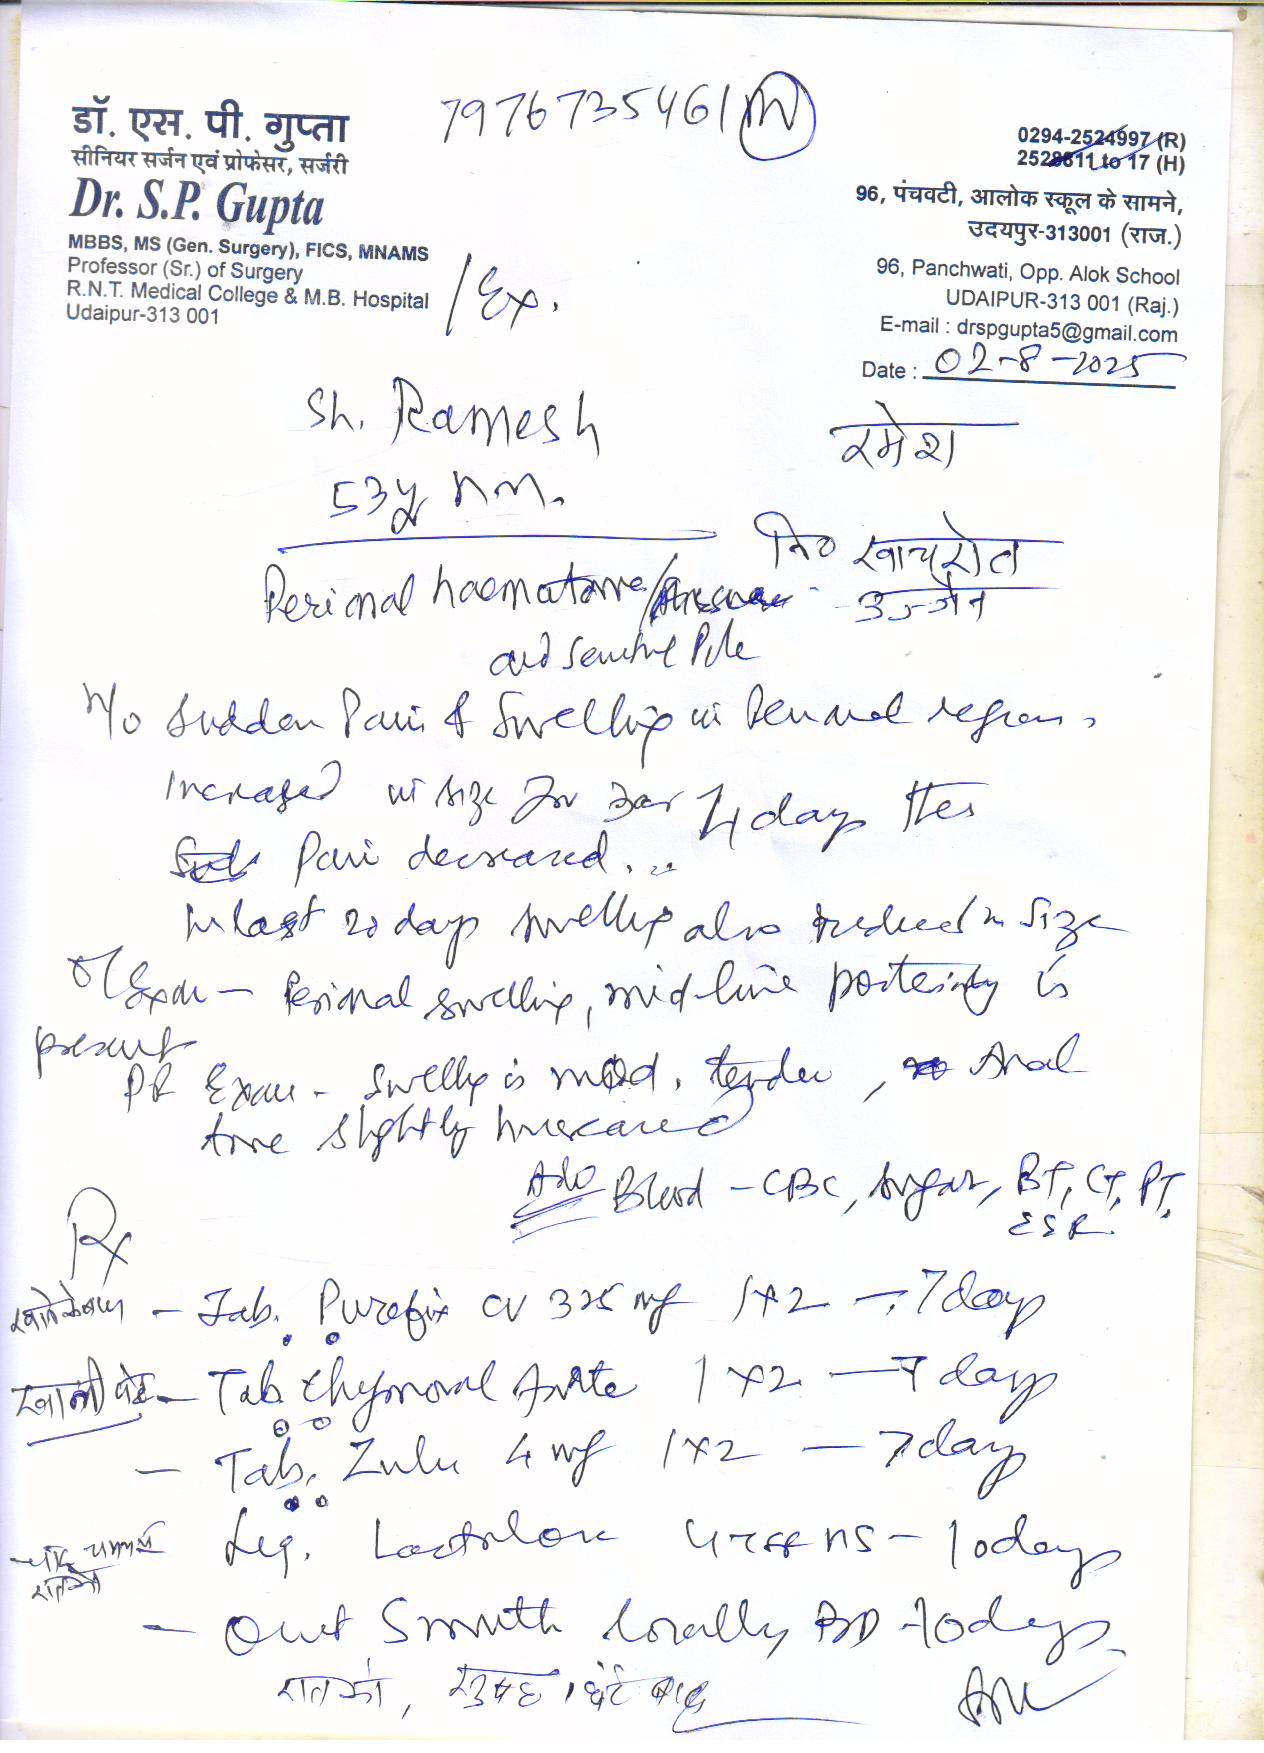 7976735461 (M)
डॉ. एस. पी. गुप्ता
सीनियर सर्जन एवं प्रोफेसर, सर्जरी
Dr. S.P. Gupta
MBBS, MS (Gen. Surgery), FICS, MNAMS
Professor (Sr.) of Surgery
R.N.T. Medical College & M.B. Hospital
Udaipur-313 001
/Ex.
0294-2524997 (R)
2528811 to 17 (H)
96, पंचवटी, आलोक स्कूल के सामने,
उदयपुर-313001 (राज.)
96, Panchwati, Opp. Alok School
UDAIPUR-313 001 (Raj.)
E-mail : drspgupta5@gmail.com
Date : 02-8-2025
Sh. Ramesh
रमेश
53y
नि०
उज्जैन
Perianal haematoma/
and Sentinel Pile
H/o sudden Pain & Swelling in Perianal region,
Increased in size for 4 days
Pain decreased...
In last 20 days swelling also reduced in size
O/Exam - Perianal swelling, midline posteriorly is
present
PR Exam - Swelling is mod. tender, Anal
tone slightly increased
Adv Blood - CBC, Sugar, BT, CT, PT,
ESR.
Rx
- Tab. Purefix CV 325 mg 1x2 - 7 days
खाली पेट - Tab. Chymoral Forte 1 x 2 - 7 days
- Tab. Zulu 4 mg 1x2 - 7 days
Liq. - 10 days
- Oint Smuth locally BD - 10 days
रातको, सुबह